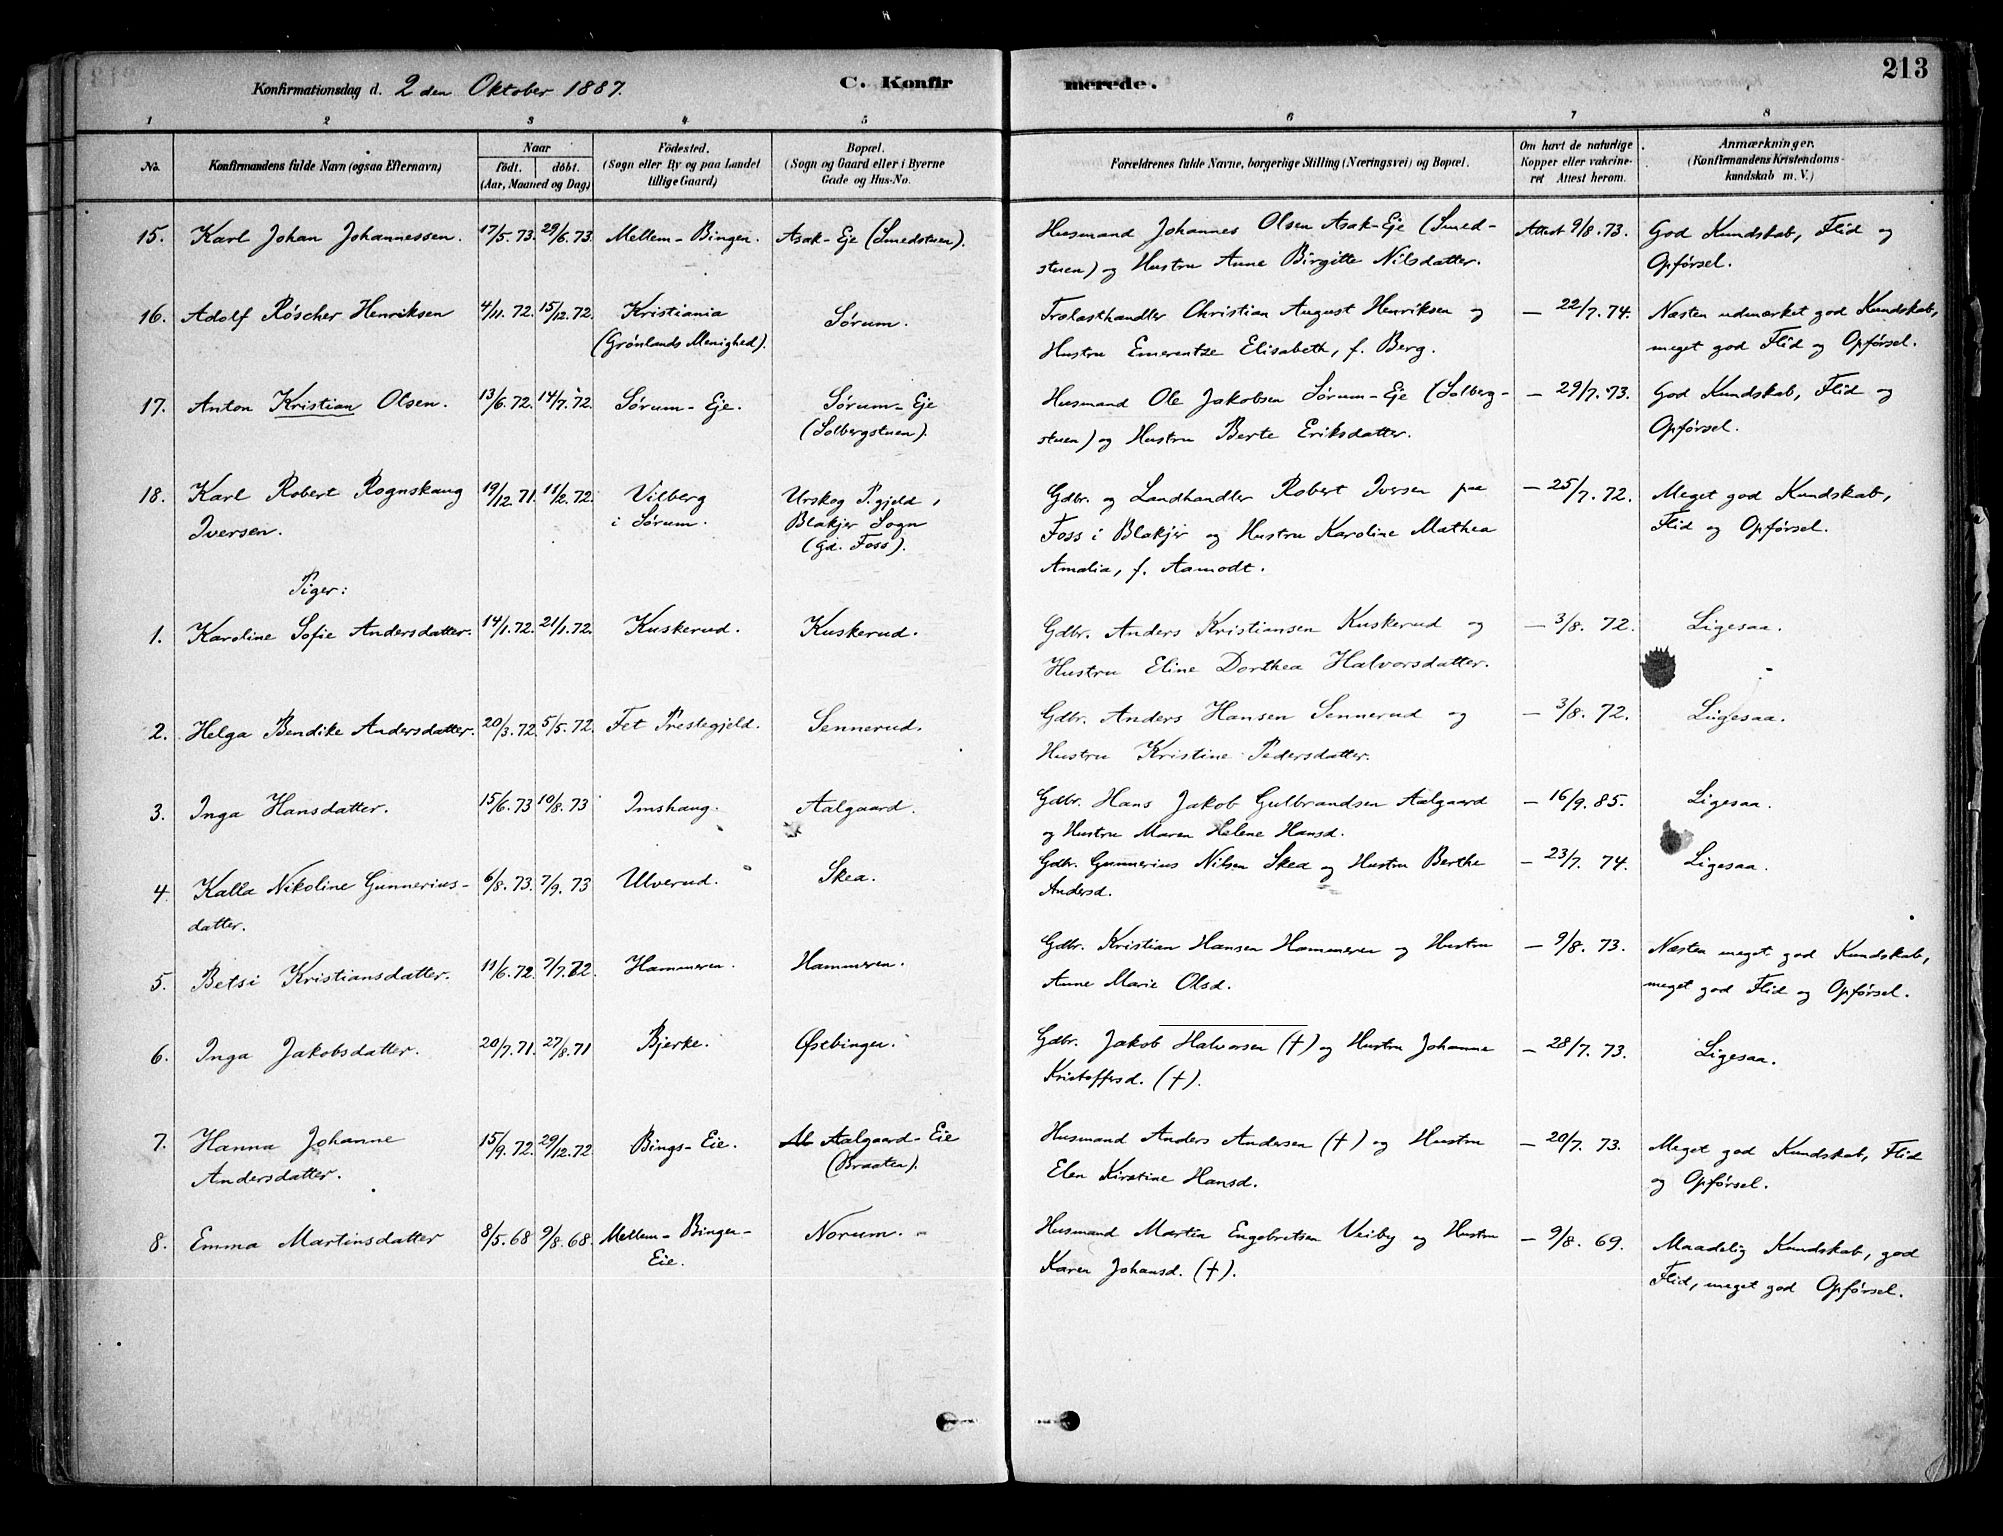 213
Konfirmationsdag d. 2 den Oktober 1887.
C. Konfirmerede.
1 2 3 4 5 6 7 8
No.
Konfirmandens fulde Navn (ogsaa Efternavn)
Naar
født. døbt.
(Aar, Maaned og Dag)
Fødested.
(Sogn eller By og paa Landet
tillige Gaard)
Bopæl.
(Sogn og Gaard eller i Byerne
Gade og Hus-No.
Forældrenes fulde Navne, borgerlige Stilling (Næringsvei) og Bopæl.
Om havt de naturlige
Kopper eller vakcine-
ret Attest herom.
Anmærkninger.
(Konfirmandens Kristendoms-
kundskab m. V.)
15. Karl Johan Johannessen. 17/5.73. 29/6.73. Mellem-Bingen. Asak-Eje (Smedstuen). Husmand Johannes Olsen Asak-Eje (Smed- Attest 9/8.73. God Kundskab, Flid og
stuen) og Hustru Anne Birgitte Nilsdatter. Opførsel.
16. Adolf Röscher Henriksen 4/11.72. 15/12.72. Kristiania Sørum. Trælasthandler Christian August Henriksen og — 22/7.74. Næsten udmærket god Kundskab,
(Grønlands Menighed). Hustru Emerentze Elisabeth, f. Berg. meget god Flid og Opførsel.
17. Anton Kristian Olsen. 13/6.72. 14/7.72. Sørum-Eje. Sørum-Eje Husmand Ole Jakobsen Sørum-Eje (Solberg- — 29/7.73. God Kundskab, Flid og
(Solbergstuen). stuen) og Hustru Berte Eriksdatter. Opførsel.
18. Karl Robert Rognskaug 19/12.71. 11/2.72. Vilberg Urskog P.gjeld, Gdbr. og Landhandler Robert Iversen paa — 25/7.72. Meget god Kundskab,
Iversen. i Sørum. Blakjer Sogn Foss i Blakjer og Hustru Karoline Mathea Flid og Opførsel.
(Gd. Foss). Amalia, f. Aamodt.
Piger:
1. Karoline Sofie Andersdatter. 14/1.72. 21/1.72. Kuskerud. Kuskerud. Gdbr. Anders Kristiansen Kuskerud og — 3/8.72. Ligesaa.
Hustru Eline Dorthea Halvorsdatter.
2. Helga Bendike Andersdatter. 20/3.72. 5/5.72. Fet Prestegjeld. Sennerud. Gdbr. Anders Hansen Sennerud og — 3/8.72. Ligesaa.
Hustru Kristine Pedersdatter.
3. Inga Hansdatter. 15/6.73 10/8.73 Imshaug. Aalgaard. Gdbr. Hans Jakob Gulbrandsen Aalgaard — 16/9.85. Ligesaa.
og Hustru Maren Helene Hansd.
4. Kalla Nikoline Gunnerius- 6/8.73. 7/9.73 Ulverud. Skea. Gdbr. Gunnerius Nilsen Skea og Hustru Berthe — 23/7.74. Ligesaa.
datter. Andersd.
5. Betsi Kristiansdatter. 11/6.72. 7/7.72. Hammeren. Hammeren. Gdbr. Kristian Hansen Hammeren og Hustru — 9/8.73. Næsten meget god Kundskab,
Anne Marie Olsd. meget god Flid og Opførsel.
6. Inga Jakobsdatter. 20/7.71. 27/8.71 Bjerke. Østbingen. Gdbr. Jakob Halvorsen (†) og Hustru Johanne — 28/7.73. Ligesaa.
Kristoffersd. (†).
7. Hanna Johanne 15/9.72. 29/12.72 Bings-Eie. Aalgaard-Eie Husmand Anders Andersen (†) og Hustru — 20/7.73. Meget god Kundskab, Flid
Andersdatter. (Braaten). Elen Kirstine Hansd. og Opførsel.
8. Emma Martinsdatter 8/5.68 9/8.68. Mellem-Bingen- Norum. Husmand Martin Engebretsen Veiby og Hustru — 9/8.69. Maadelig Kundskab, god
Eie. Karen Johansd. (†). Flid, meget god Opførsel.